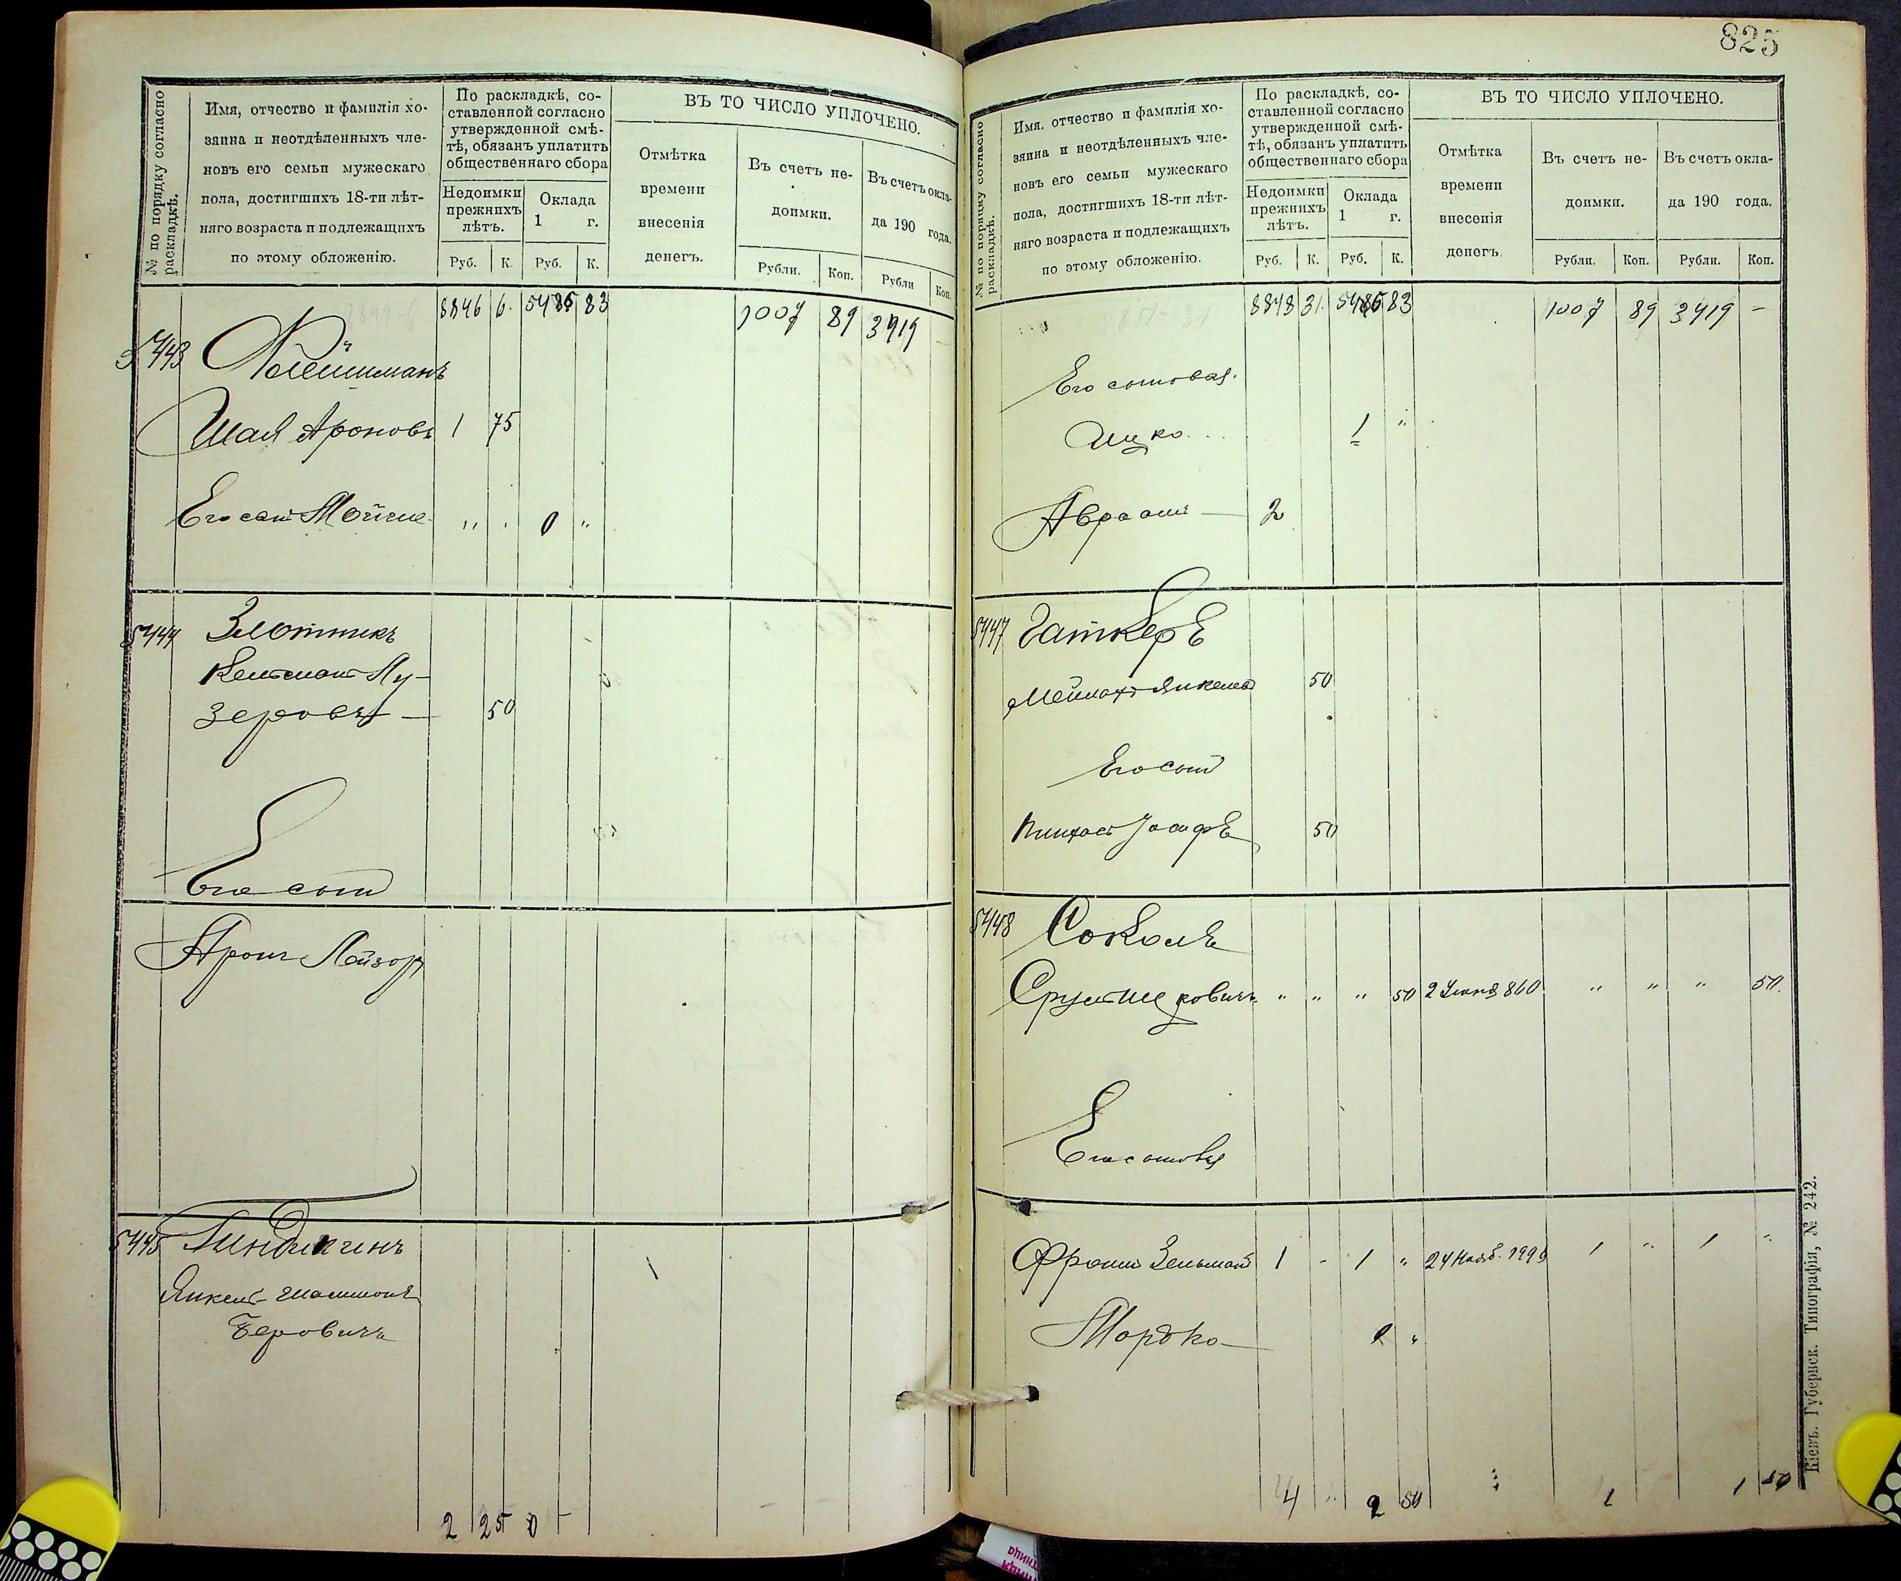 № по порядку согласно раскладкѣ.
Имя, отчество и фамилія хозяина и неотдѣленныхъ членовъ его семьи мужескаго пола, достигшихъ 18-ти лѣтняго возраста и подлежащихъ по этому обложенію.
По раскладкѣ, составленной согласно утвержденной смѣтѣ, обязанъ уплатить общественнаго сбора
Недоимки прежнихъ лѣтъ.
Оклада 1 г.
Руб. К. Руб. К.
ВЪ ТО ЧИСЛО УПЛОЧЕНО.
Отмѣтка времени внесенія денегъ.
Въ счетъ недоимки.
Въ счетъ оклада 190 года.
Рубли. Коп. Рубли Коп.
8846 6. 5486 83 1007 89 3919
5443 Клейманъ
Шая Ароновъ 1 75
Его сын Мойше " . 0 "
5444 Злотникъ
Зеровъ — 50
Его сын
Аронъ Лейзоръ
5445
Янкель
Беровичъ
2 25 0 -
825
№ по порядку согласно раскладкѣ.
Имя, отчество и фамилія хозяина и неотдѣленныхъ членовъ его семьи мужескаго пола, достигшихъ 18-ти лѣтняго возраста и подлежащихъ по этому обложенію.
По раскладкѣ, составленной согласно утвержденной смѣтѣ, обязанъ уплатить общественнаго сбора
Недоимки прежнихъ лѣтъ.
Оклада 1 г.
Руб. К. Руб. К.
ВЪ ТО ЧИСЛО УПЛОЧЕНО.
Отмѣтка времени внесенія денегъ.
Въ счетъ недоимки.
Въ счетъ оклада 190 года.
Рубли. Коп. Рубли. Коп.
8848 31. 5486 83 1007 89 3919 -
Его сыновья.
Ицко 1 "
Авраам — 2
5447 Гаткеръ
Мейлахъ Янкелев 50
Его сын
Пинхас Іосифъ 50
5448 Соколъ
Срул " " " 50 " " " 50.
Его сыновья
Фроим Зельман 1 - 1 " 24 Нояб. 1 " 1 "
Мордко
4 2 50 1 1 50
Кіевъ. Губернск. Типографія, № 242.